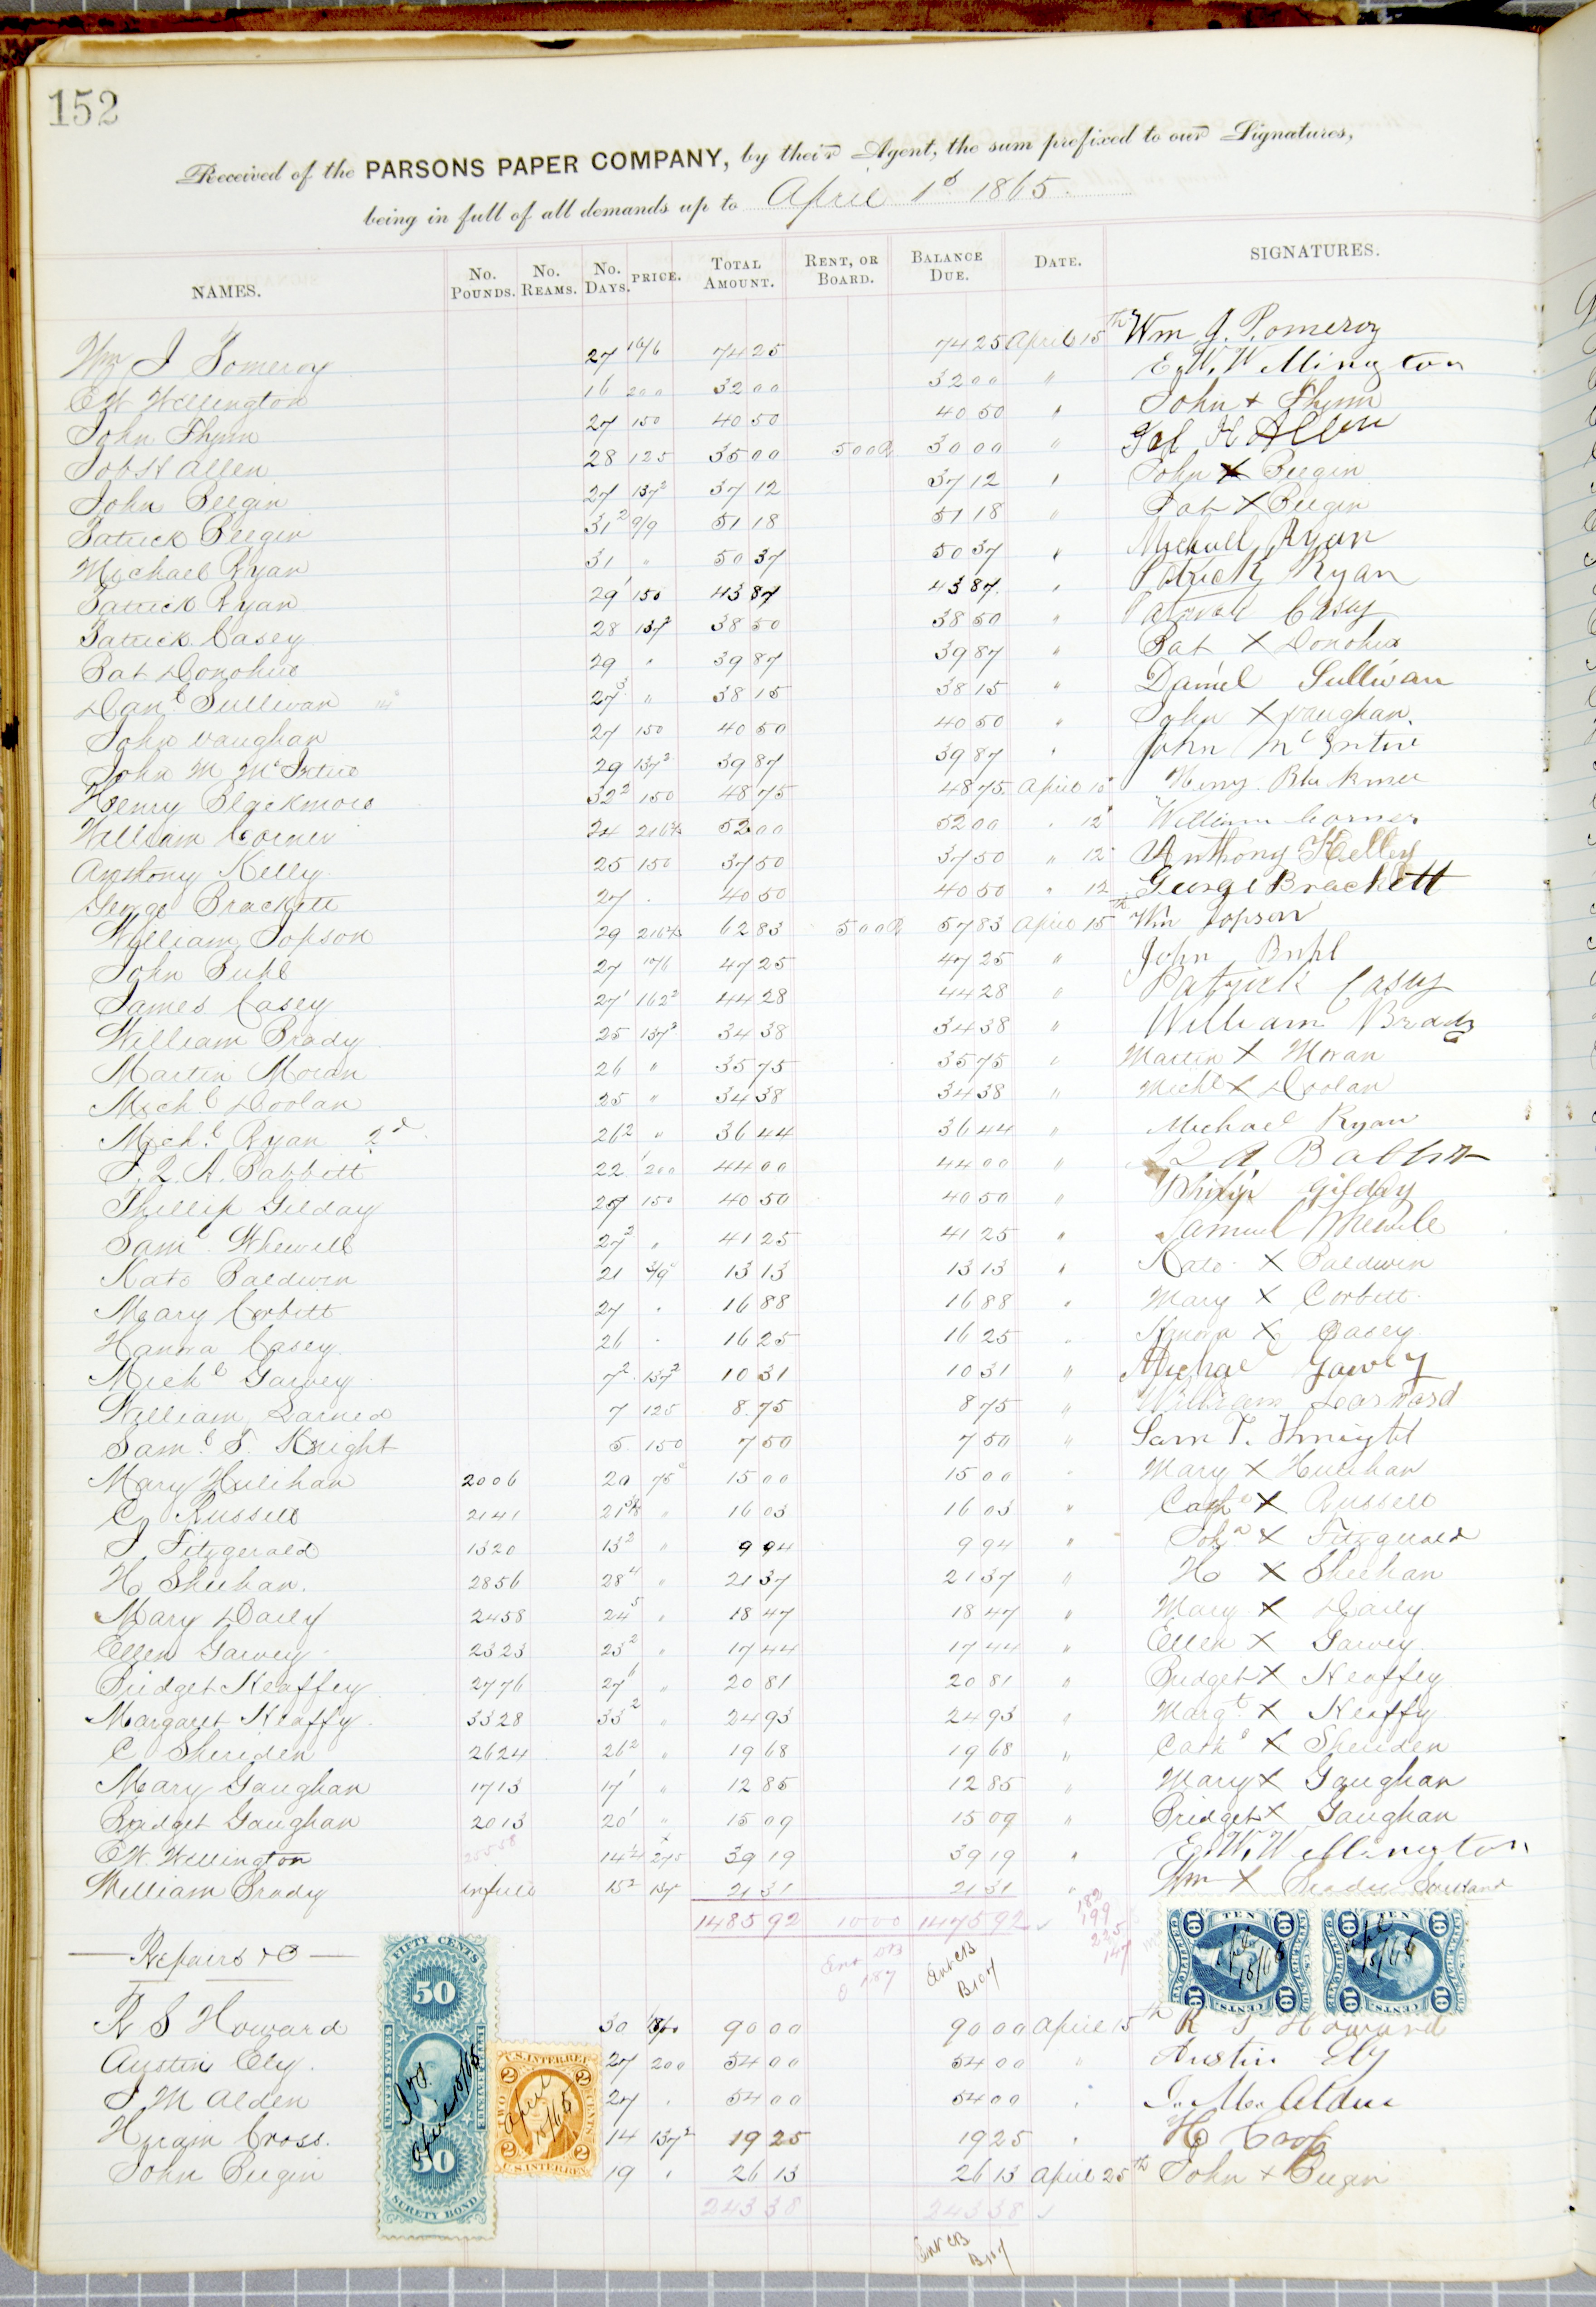 152
Received of the PARSONS PAPER COMPANY, by their Agent, the sum prefixed to our Signatures,
being in full of all demands up to April 1st 1865.
NAMES. No. POUNDS. No. REAMS. No. DAYS. PRICE. TOTAL AMOUNT. RENT, OR BOARD. BALANCE DUE. DATE. SIGNATURES.
Wm J Pomeroy 27 16/6 74 25 74 25 April 15th Wm J. Pomeroy
E W Wellington 16 200 32 00 32 00 " E. W. Wellington
John Flynn 27 150 40 50 40 50 " John + Flynn
Job H Allen 28 125 35 00 5 00 30 00 " Job H Allen
John Beegin 27 137² 37 12 37 12 " John X Beegin
Patrick Beegin 31² 9/9 51 18 51 18 " Pat X Beegin
Michael Ryan 31 " 50 37 50 37 " Michael Ryan
Patrick Ryan 29¹ 150 43 87 43 87 " Patrick Ryan
Patrick Casey 28 137² 38 50 38 50 " Patrick Casey
Pat Donohue 29 " 39 87 39 87 " Pat X Donohue
Danl Sullivan 27³ " 38 15 38 15 " Daniel Sullivan
John Vaughan 27 150 40 50 40 50 " John X Vaughan.
John M McIntire 29 137² 39 87 39 87 " John McIntire
Henry Blackmore 32² 150 48 75 48 75 April 15 Henry
William Corner 24 216⅔ 52 00 52 00 " 12 William Corner
Anthony Kelly 25 150 37 50 37 50 " 12 Anthony Kelley
George Brackett 27 " 40 50 40 50 " 12 George Brackett
William Jopson 29 216⅔ 62 83 5 00 57 83 April 15th Wm Jopson
John Buhl 27 10/6 47 25 47 25 " John Buhl
James Casey 27¹ 162² 44 28 44 28 " Patrick Casey
William Brady 25 137² 34 38 34 38 " William Brady
Martin Moran 26 " 35 75 35 75 " Martin X Moran
Michl Doolan 25 " 34 38 34 38 " Michl X Doolan
Michl Ryan 2d 26² " 36 44 36 44 " Michael Ryan
J. Q. A. Babbitt 22 200 44 00 44 00 " J Q A Babbitt
Phillip Gilday 27 150 40 50 40 50 " Philip Gilday
Saml Whewell 27² " 41 25 41 25 " Samuel Whewell
Kate Baldwin 21 3/9 13 13 13 13 " Kate X Baldwin
Mary Corbett 27 " 16 88 16 88 " Mary X Corbett
Hanora Casey 26 " 16 25 16 25 " Hanora X Casey
Michl Garvey 7² 137² 10 31 10 31 " Michael Garvey
William Larned 7 125 8 75 8 75 " William
Saml T. Knight 5 150 7 50 7 50 " Sam T. Knight
Mary Hulihan 2006 20 75c 15 00 15 00 " Mary X Hulihan
C Russell 2141 21⅜ " 16 03 16 03 " Cathe X Russell
J Fitzgerald 1320 13² " 9 94 9 94 " Joha X Fitzgerald
H Sheehan. 2856 28⁴ " 21 37 21 37 " H X Sheehan
Mary Daily 2458 24⁵ " 18 47 18 47 " Mary X Daily
Ellen Garvey 2323 23² " 17 44 17 44 " Ellen X Garvey
Bridget Keaffey 2776 27⁶ " 20 81 20 81 " Bridget X Keaffey
Margaret Keaffy 3328 33² " 24 93 24 93 " Margt X Keaffy
C Sheriden 2624 26² " 19 68 19 68 " Cathe X Sheriden
Mary Gaughan 1713 17¹ " 12 85 12 85 " Mary X Gaughan
Bridget Gaughan 2013 20¹ " 15 09 15 09 " Bridget X Gaughan
E W. Wellington 25558 14¼ 275 39 19 39 19 " E. W. Wellington
William Brady in full 15² 137² 21 31 21 31 " Wm X Brady
1485 92 10 00 1475 92
182
199
225
147
Repairs &C
Ent CB
B107
R S Howard 30 90 00 90 00 April 15th R S Howard
Austin Ely. 27 200 54 00 54 00 " Austin Ely
J M Alden 27 " 54 00 54 00 " J. M. Alden
Hiram Cross. 14 137² 19 25 19 25 " H Cross
John Beegin 19 " 26 13 26 13 April 25th John + Beegin
243 38 243 38
Ent CB
B107
FIFTY CENTS
50
UNITED STATES
INTER. REVENUE
April 15/65
50
SURETY BOND
U.S. INTER. REV.
2
TWO CENTS
April 15/65
U.S. INTER. REV.
TEN
10
CENTS
Apl 15/65
TEN
10
CENTS
Apl 15/65